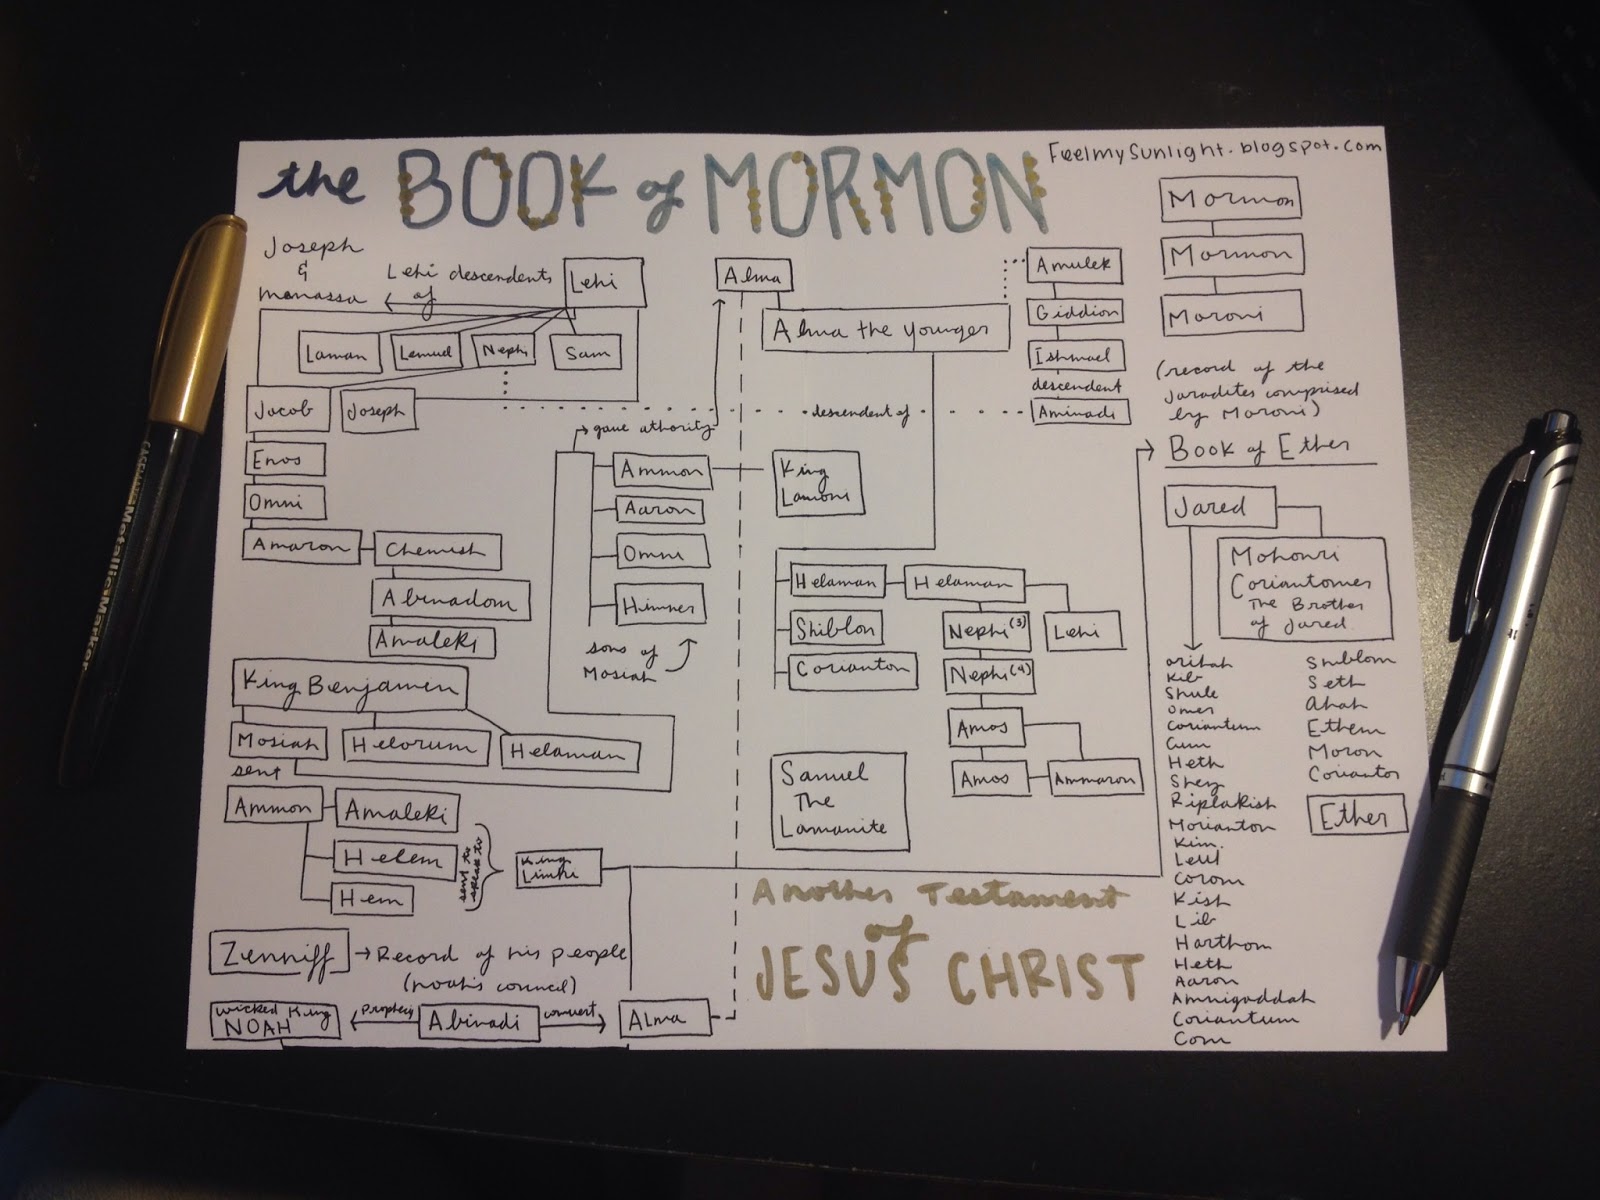 the BOOK of MORMON
FeelmySunlight.blogspot.com
Joseph
&
Manassa
Lehi descendents
of
Lehi
Laman
Lemuel
Nephi
Sam
Jacob
Joseph
Enos
Omni
Amaron
Chemish
Abinadom
Amaleki
King Benjamen
Mosiah
Helorum
Helaman
sent
Ammon
Amaleki
Helem
Hem
sent to
speak to
King
Limhi
Zenniff
Record of his people
(noah's council)
wicked King
NOAH
Abinadi
convert
Alma
gave athority
Ammon
Aaron
Omni
Himner
sons of
Mosiah
Alma
Alma the younger
descendent of
King
Lamoni
Helaman
Helaman
Shiblon
Corianton
Nephi (3)
Lehi
Nephi (4)
Amos
Amos
Ammaron
Samuel
The
Lamanite
Another Testament
of
JESUS CHRIST
Amulek
Giddion
Ishmael
descendent
Aminadi
Mormon
Mormon
Moroni
(record of the
Jaradites comprised
by Moroni)
Book of Ether
Jared
Mohonri
Coriantomer
The Brother
of Jared
orihah
Kib
Shule
Omer
Coriantum
Heth
Shez
Riplakish
Morianton
Kim.
Corom
Kish
Lib
Harthom
Heth
Aaron
Amnigaddah
Coriantum
Com
Shiblom
Seth
Ahah
Ethem
Moron
Coriantor
Ether
CASE-MATE MetallicMarker